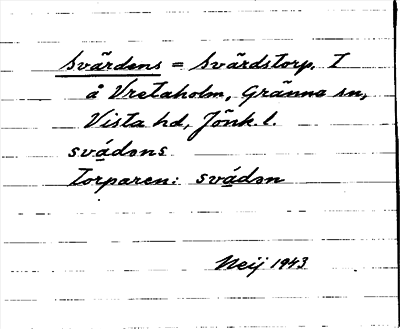 Svärdens = Svärdstorp, T
å Vretaholm, Gränna sn,
Vista hd, Jönk. l.
svádəns
Torparen: svádən
Neij 1943